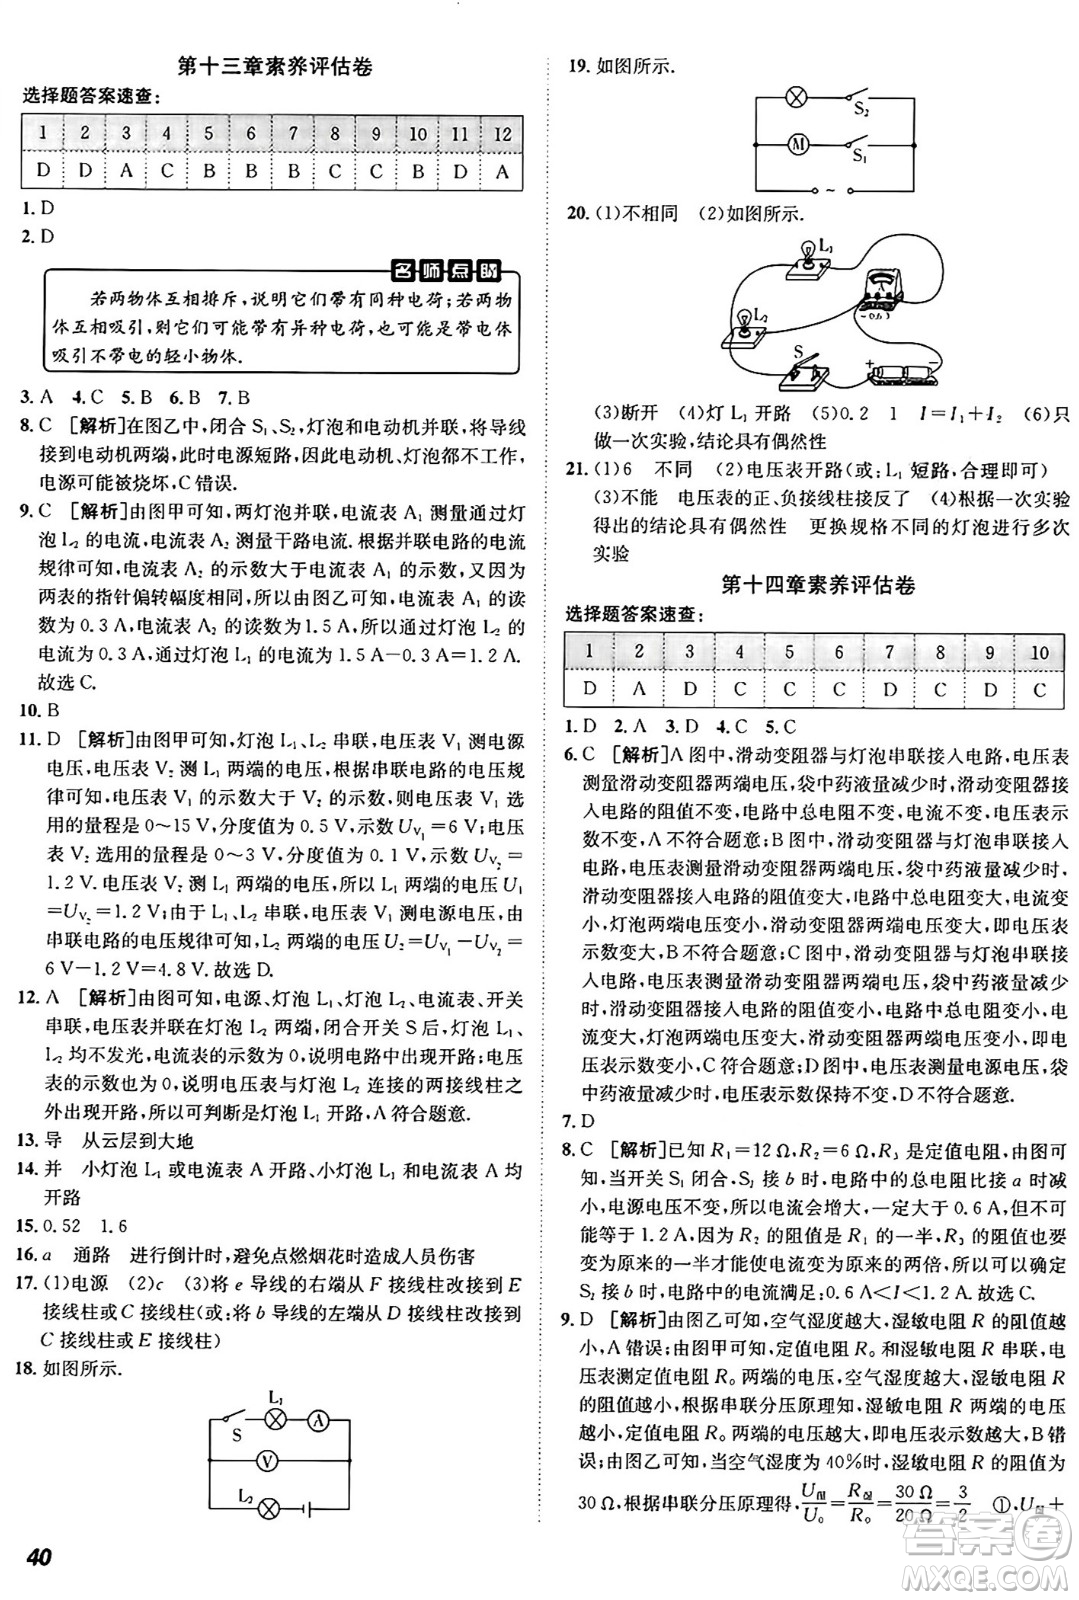 第十三章素养评估卷
选择题答案速查:
1 2 3 4 5 6 7 8 9 10 11 12
D D A C B B B C C B D A
1. D
2. D
名师点睛
若两物体互相排斥,说明它们带有同种电荷;若两物
体互相吸引,则它们可能带有异种电荷,也可能是带电体
吸引不带电的轻小物体.
3. A 4. C 5. B 6. B 7. B
8. C [解析]在图乙中,闭合 S₁、S₂,灯泡和电动机并联,将导线
接到电动机两端,此时电源短路,因此电动机、灯泡都不工作,
电源可能被烧坏,C 错误.
9. C [解析]由图甲可知,两灯泡并联,电流表 A₁ 测量通过灯
泡 L₂ 的电流,电流表 A₂ 测量干路电流.根据并联电路的电流
规律可知,电流表 A₂ 的示数大于电流表 A₁ 的示数,又因为
两表的指针偏转幅度相同,所以由图乙可知,电流表 A₁ 的读
数为 0.3 A,电流表 A₂ 的读数为 1.5 A,所以,通过灯泡 L₂ 的
电流为 0.3 A,通过灯泡 L₁ 的电流为 1.5 A－0.3 A＝1.2 A.
故选 C.
10. B
11. D [解析]由图甲可知,灯泡 L₁、L₂ 串联,电压表 V₁ 测电源
电压,电压表 V₂ 测灯泡 L₁ 两端的电压,根据串联电路的电压规
律可知,电压表 V₁ 的示数大于 V₂ 的示数,则电压表 V₁ 选
用的量程是 0～15 V,分度值为 0.5 V,示数 U_V₁＝6 V;电压
表 V₂ 选用的量程是 0～3 V,分度值为 0.1 V,示数 U_V₂＝
1.2 V.因为电压表 V₂ 测 L₁ 两端的电压,所以 L₁ 两端的电压 U₁
＝U_V₂＝1.2 V,由于 L₁、L₂ 串联,电压表 V₁ 测电源电压,由
串联电路的电压规律可知,L₂ 两端的电压 U₂＝U_V₁－U_V₂＝
6 V－1.2 V＝4.8 V.故选 D.
12. A [解析]由图可知,电源、灯泡 L₁、灯泡 L₂、电流表、开关
串联,电压表并联在灯泡 L₂ 两端,闭合开关 S 后,灯泡 L₁、
L₂ 均不发光,电流表的示数为 0,说明电路中出现开路;电压
表的示数也为 0,说明电压表与灯泡 L₂ 连接的两接线柱之
外出现开路,所以可判断是灯泡 L₁ 开路,A 符合题意.
13. 导 从云层到大地
14. 并 小灯泡 L₁ 或电流表 A 开路、小灯泡 L₁ 和电流表 A 均
开路
15. 0.52 1.6
16. a 通路 进行倒计时,避免点燃烟花时造成人员伤害
17. (1)电源 (2)c (3)将 e 导线的右端从 F 接线柱改接到 E
接线柱或 C 接线柱(或:将 b 导线的左端从 D 接线柱改接到
C 接线柱或 E 接线柱)
18. 如图所示.
L₁
S
A
V
L₂
40
19. 如图所示.
S₂
M
S₁
~
20. (1)不相同 (2)如图所示.
L₁
L₂
S
－0.6 3
＋ －
(3)断开 (4)灯 L₁ 开路 (5)0.2 1 I＝I₁＋I₂ (6)只
做一次实验,结论具有偶然性
21. (1)6 不同 (2)电压表开路(或:L₁ 短路,合理即可)
(3)不能 电压表的正、负接线柱接反了 (4)根据一次实验
得出的结论具有偶然性 更换规格不同的灯泡进行多次
实验
第十四章素养评估卷
选择题答案速查:
1 2 3 4 5 6 7 8 9 10
D A D C C C D C D C
1. D 2. A 3. D 4. C 5. C
6. C [解析]A 图中,滑动变阻器与灯泡串联接入电路,电压表
测量滑动变阻器两端电压,袋中药液量减少时,滑动变阻器
接入电路的阻值不变,电路中总电阻不变,电流不变,电压表示
数不变,A 不符合题意;B 图中,滑动变阻器与灯泡串联接入
电路,电压表测量滑动变阻器两端电压,袋中药液量减少时,
滑动变阻器接入电路的阻值变大,电路中总电阻变大,电流变
小,灯泡两端电压变小,滑动变阻器两端电压变大,即电压表
示数变大,B 不符合题意;C 图中,滑动变阻器与灯泡串联接入
电路,电压表测量滑动变阻器两端电压,袋中药液量减少时,
滑动变阻器接入电路的阻值变小,电路中总电阻变小,电
流变大,灯泡两端电压变大,滑动变阻器两端电压变小,即电
压表示数变小,C 符合题意;D 图中,电压表测量电源电压,
袋中药液量减少时,电压表示数保持不变,D 不符合题意.
7. D
8. C [解析]已知 R₁＝12 Ω,R₂＝6 Ω,R₃ 是定值电阻,由图可
知,当开关 S₁ 闭合、S₂ 接 b 时,电路中的总电阻比接 a 时减
小,电源电压不变,所以电流会增大,一定大于 0.6 A,但不可
能等于 1.2 A,因为 R₂ 的阻值是 R₁ 的阻值的一半,R₃ 的阻
值不变,所以总电阻不可能变为原来的一半,根据欧姆定律可
知,电源电压不变时,电流不可能变为原来的两倍,所以开关
S₂ 接 b 时,电路中的电流满足:0.6 A＜I＜1.2 A.故选 C.
9. D [解析]由图乙可知,空气湿度越大,湿敏电阻 R 的阻值越
小,A 错误;由图甲可知,定值电阻 R₀ 和湿敏电阻 R 串联,
电压表测定值电阻 R₀ 两端的电压,空气湿度越大,湿敏电阻 R
的阻值越小,根据串联分压原理知,湿敏电阻 R 两端的电压
越小,定值电阻 R₀ 两端的电压越大,即电压表示数越大,B 错
误;由图乙可知,当空气湿度为 40%时,湿敏电阻 R 的阻值为
30 Ω,根据串联分压原理得,U湿/U₀＝R湿/R₀＝30 Ω/20 Ω＝3/2 ①,U湿＋
答案圈
MXQE.COM